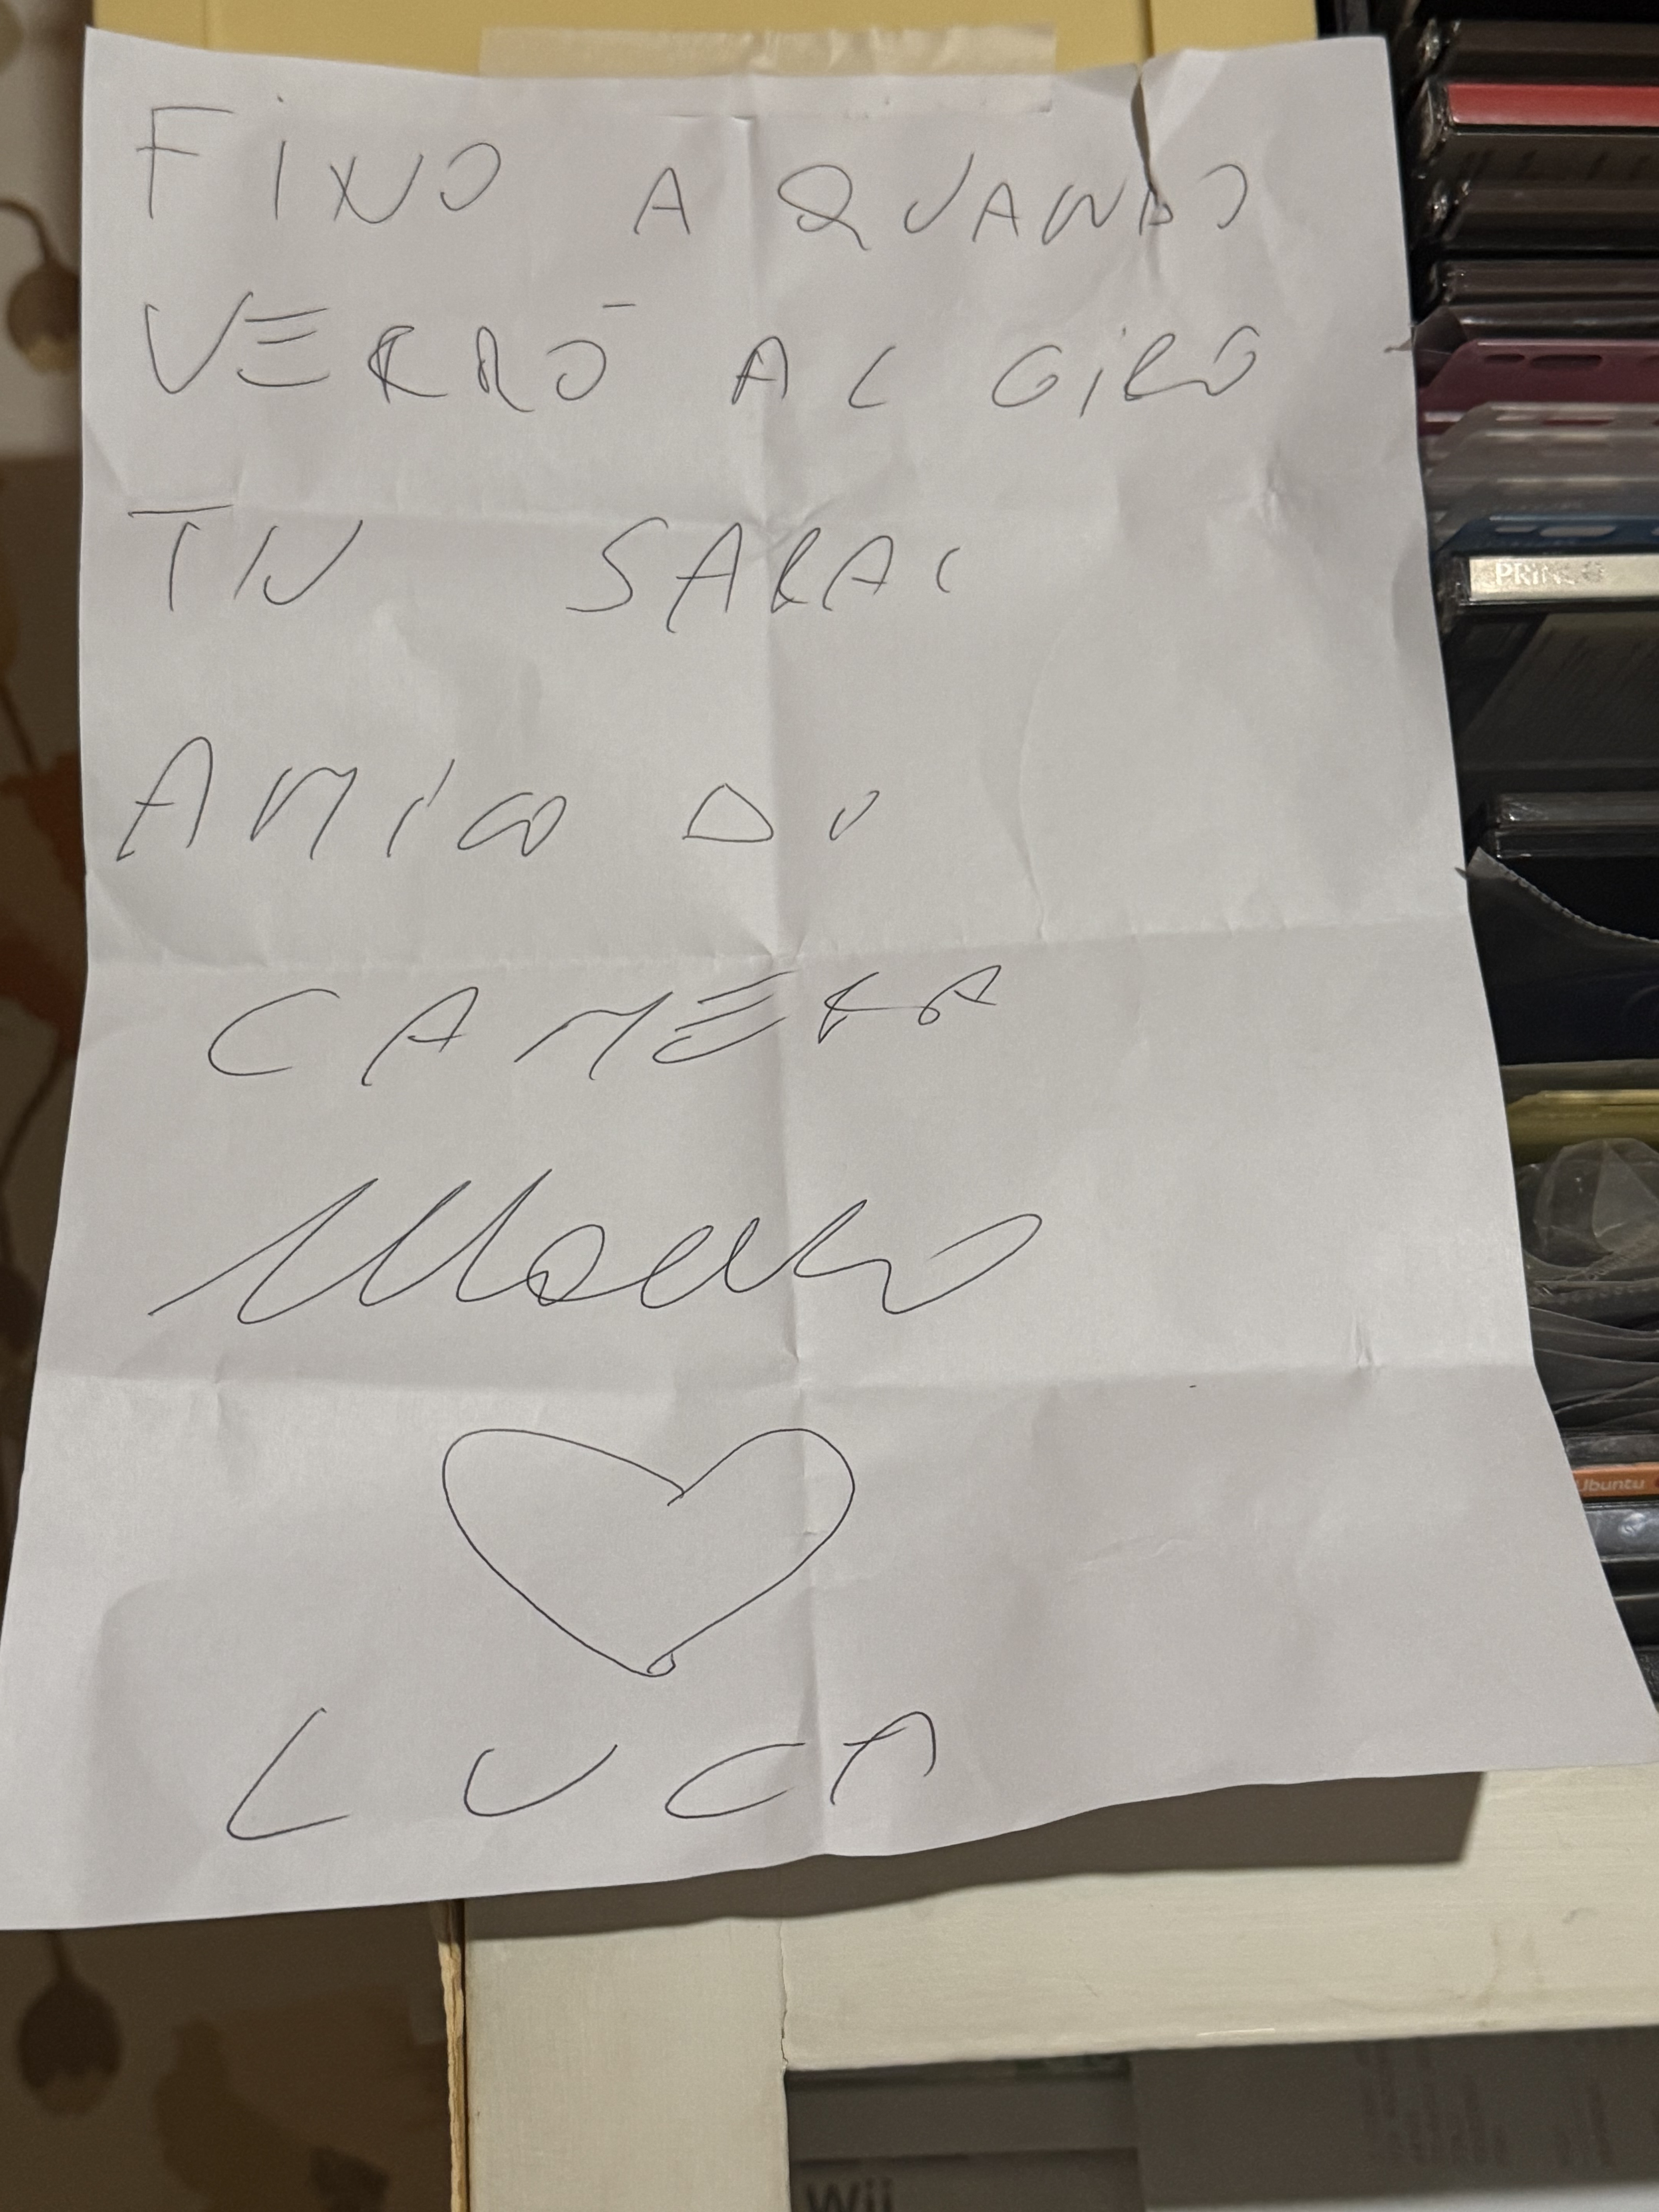 FINO A QUANDO
VERRÒ AL GIRO
TU SARAI
AMICO DI
CAMERA
LUCA
PRINCE
Ubuntu
Wii